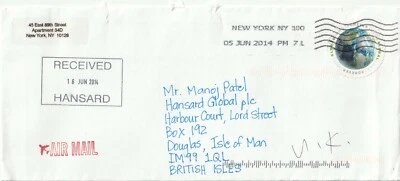 45 East 89th Street
Apartment 34D
New York, NY 10128
NEW YORK NY 100
05 JUN 2014 PM 7 L
RECEIVED
16 JUN 2014
HANSARD
Mr. Manoj Patel
Hansard Global plc
Harbour Court, Lord Street
Box 192
Douglas, Isle of Man
IM99 1QL
BRITISH ISLES
U.K.
AIR MAIL